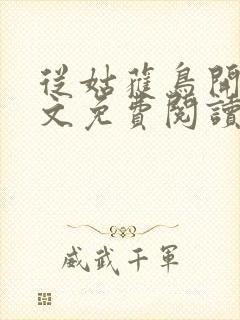 從姑蘿鳥開
文免費閱讀
威武千軍